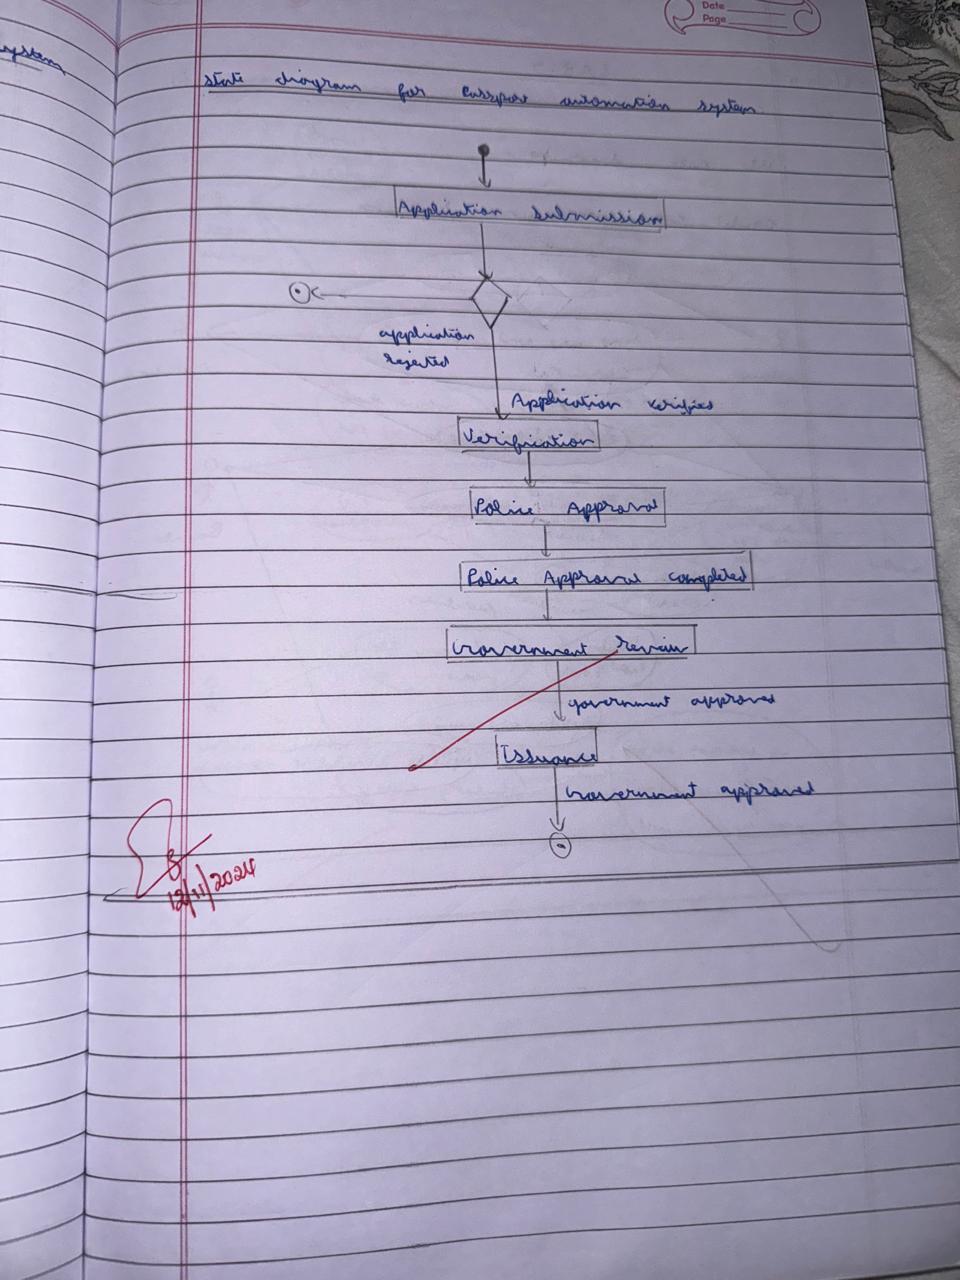 Date
Page
ystem
state diagram for Passport automation system
Application submission
application
rejected
Application verified
Verification
Police Approval
Police Approval completed
Government Review
government approved
Issuance
Government approved
12/11/2024